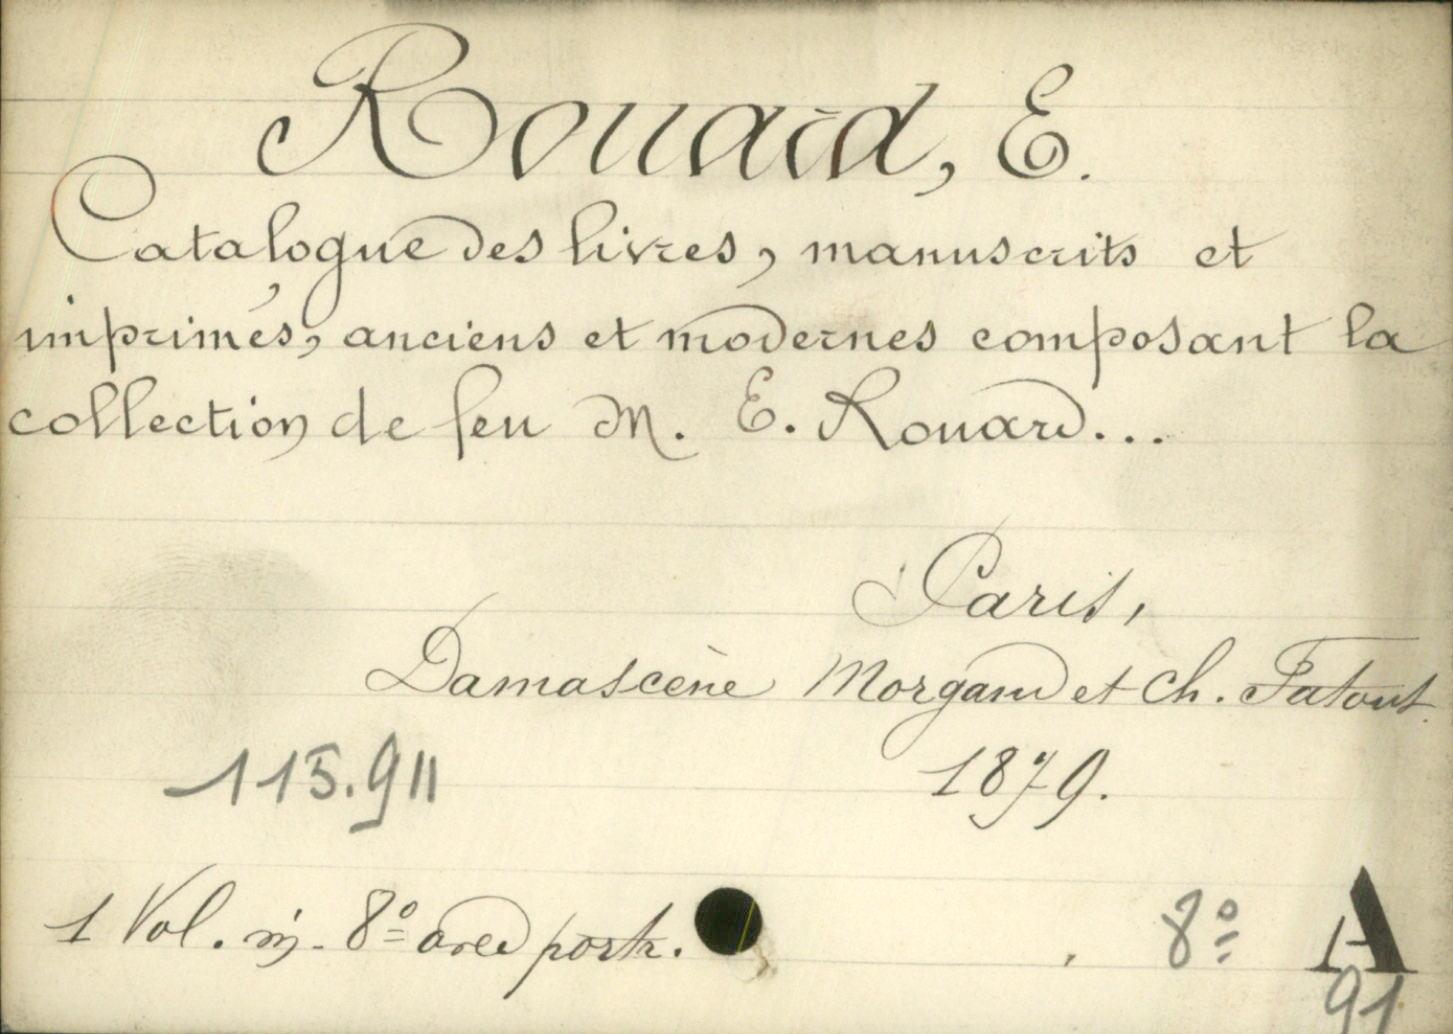 Rouard, E.
Catalogue des livres, manuscrits et
imprimés, anciens et modernes composant la
collection de feu M. E. Rouard...
Paris,
Damascène Morgand et Ch. Fatout.
115.911
1879.
1 Vol. in-8º avec portr.
8º A
91